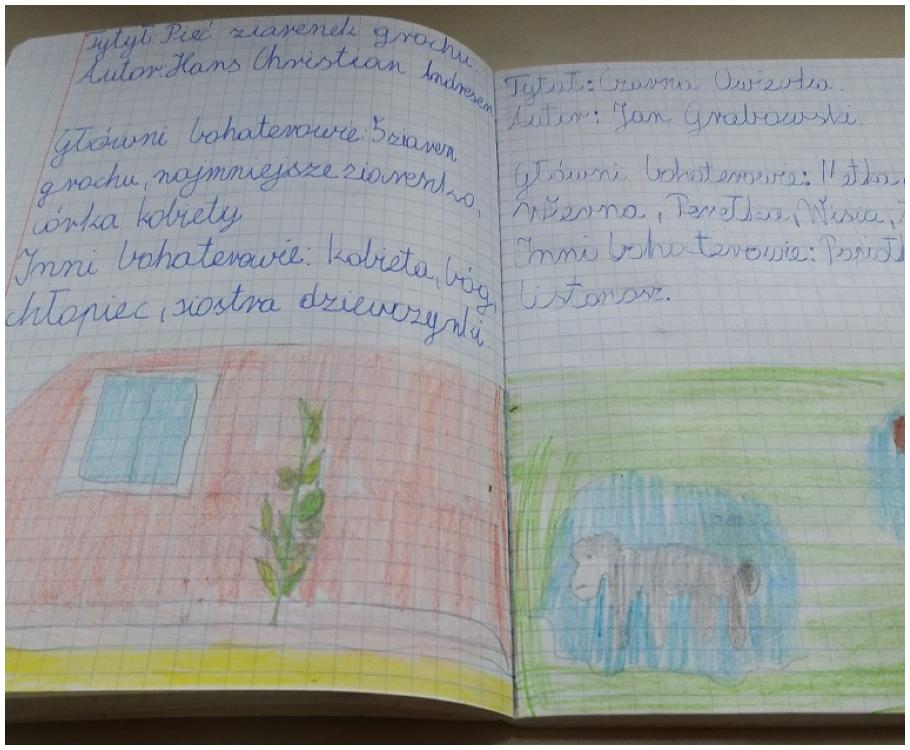 Tytył: Pięć ziarenek grochu
Autor: Hans Christian Andresen
Główni bohaterowie: 5 ziaren
grochu, najmniejsze ziarenko,
córka kobiety
Inni bohaterowie: kobieta, bóg,
chłopiec, siostra dziewczynki.
Tytuł: Czarna Owieczka.
Autor: Jan Grabowski.
Główni bohaterowie: Metka,
Wierna, Perełka, Wisia,
Inni bohaterowie:
Listonosz.